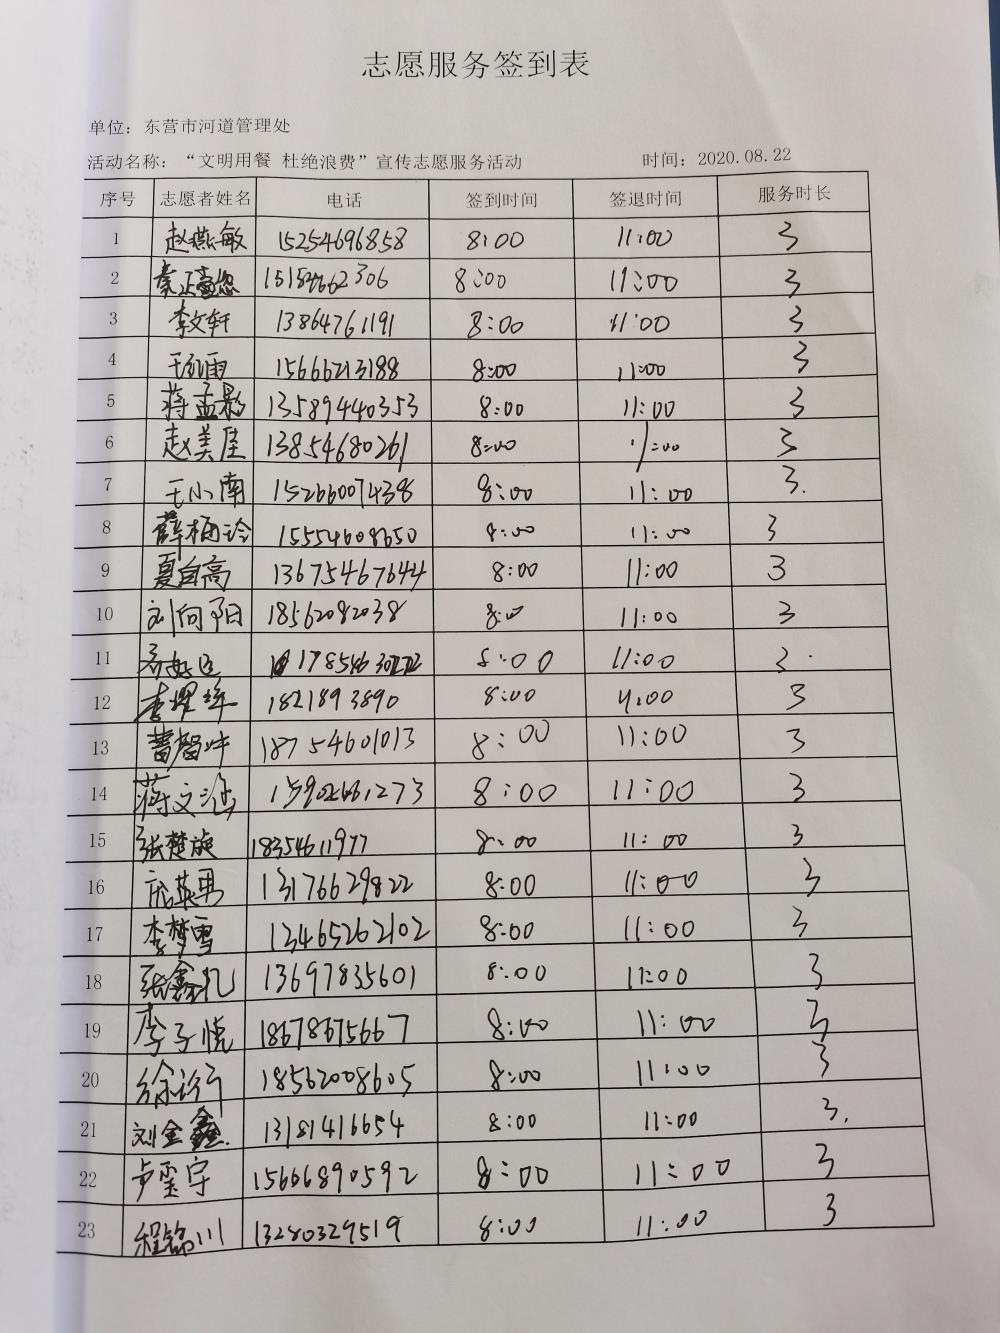 志愿服务签到表
单位：东营市河道管理处
活动名称：“文明用餐 杜绝浪费”宣传志愿服务活动 时间：2020.08.22
序号 志愿者姓名 电话 签到时间 签退时间 服务时长
1 赵燕敏 15254696858 8:00 11:00 3
2 8:00 11:00 3
3 李文轩 13864761191 8:00 11:00 3
4 15666213188 8:00 11:00 3
5 蒋孟影 13589440353 8:00 11:00 3
6 赵美佳 13854680261 8:00 11:00 3
7 王小南 15266007438 8:00 11:00 3.
8 薛栖玲 15554608650 8:00 11:00 3
9 夏自高 13675467644 8:00 11:00 3
10 刘向阳 18562082038 8:00 11:00 3
11 17854630222 8:00 11:00 3
12 1821893890 8:00 11:00 3
13 18754601013 8:00 11:00 3
14 蒋文涵 15902661273 8:00 11:00 3
15 张楚旋 18354611977 8:00 11:00 3
16 庞英男 13176629822 8:00 11:00 3
17 李梦雪 13465262102 8:00 11:00 3
18 张鑫凯 13697835601 8:00 11:00 3
19 李子悦 18678675667 8:00 11:00 3
20 徐诉 18562008605 8:00 11:00 3
21 刘金鑫 13181416654 8:00 11:00 3.
22 卢玺宇 15666890592 8:00 11:00 3
23 程铭川 13280329519 8:00 11:00 3